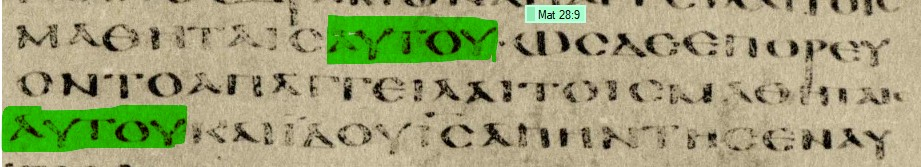 Mat 28:9
ΜΑΘΗΤΑΙϹΑΥΤΟΥ·ΩϹΔΕΕΠΟΡΕΥ
ΟΝΤΟΑΠΑΓΓΕΙΛΑΙΤΟΙϹΜΑΘΗΤΑΙϹ
ΑΥΤΟΥΚΑΙΪΔΟΥΙϹΑΠΗΝΤΗϹΕΝΑΥ